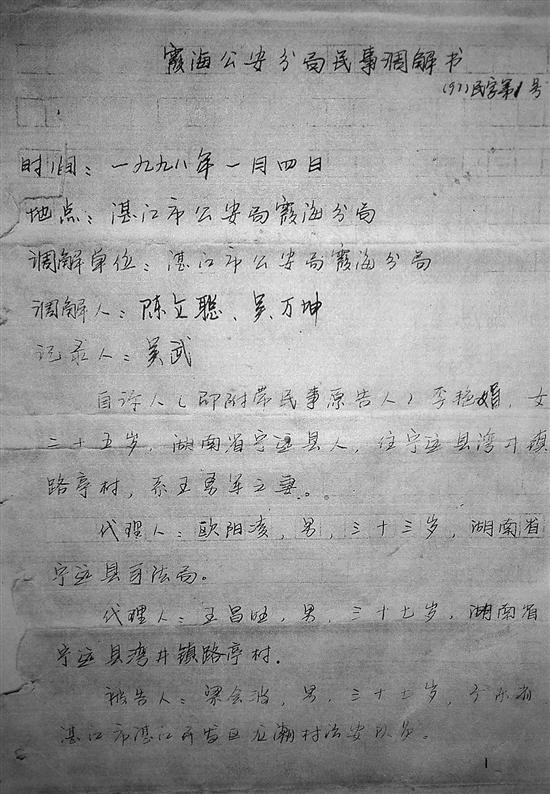 霞海公安分局民事调解书
(97)民字第1号
时间：一九九八年一月四日
地点：湛江市公安局霞海分局
调解单位：湛江市公安局霞海分局
调解人：陈立聪、吴万坤
记录人：吴武
自诉人(即附带民事原告人)李艳娟，女
三十五岁，湖南省宁远县人，住宁远县湾井镇
路亭村，系王勇军之妻。
代理人：欧阳凌，男，三十三岁，湖南省
宁远县司法局。
代理人：王昌旺，男，三十七岁，湖南省
宁远县湾井镇路亭村.
被告人：梁会治，男，三十七岁，广东省
湛江市湛江开发区龙潮村治安队员。
1